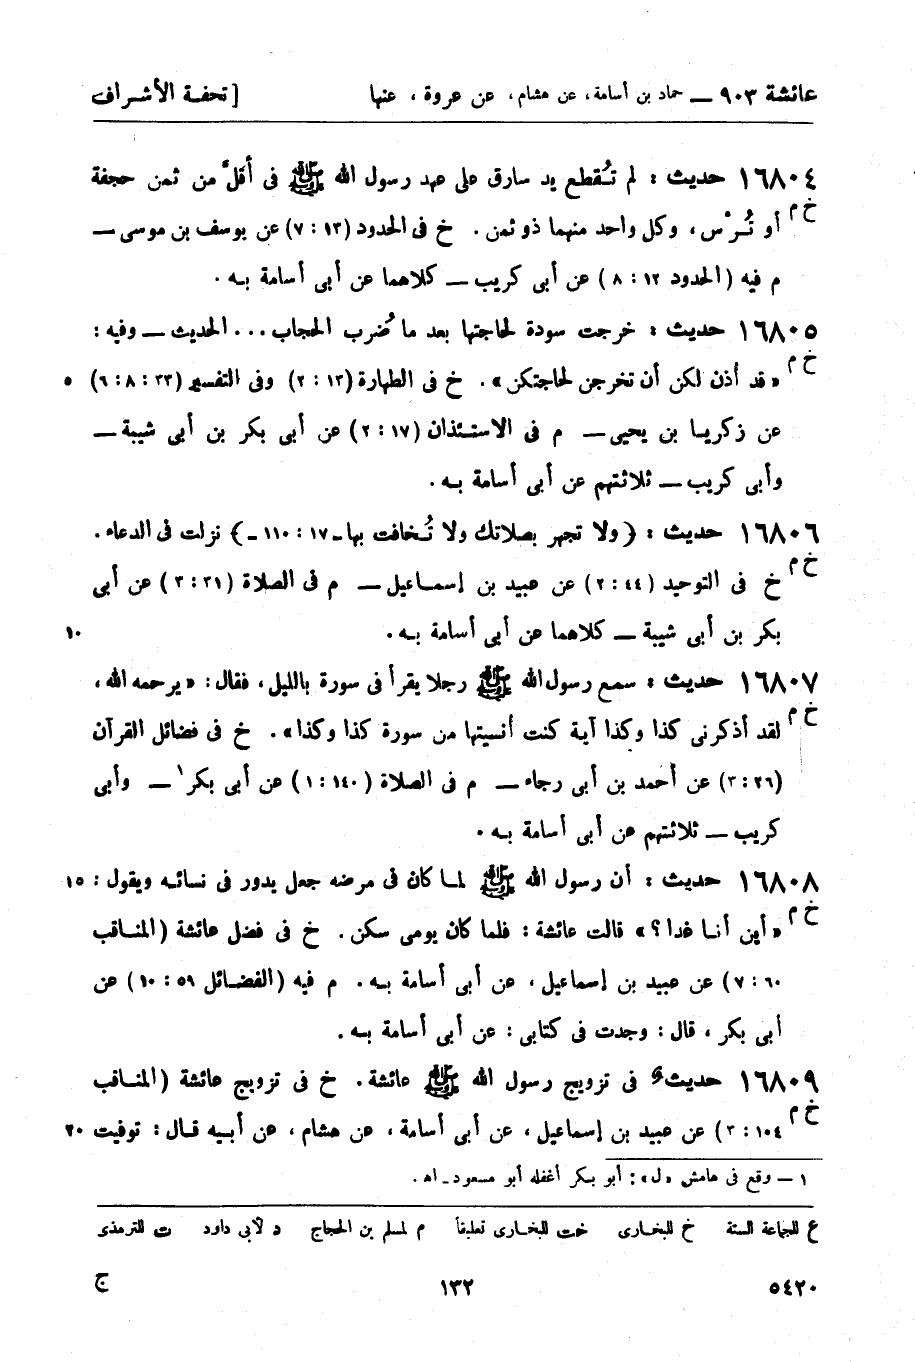 عائشة ٩٠٣ ــ حماد بن أسامة، عن هشام، عن عروة، عنها [ تحفـة الأشـراف
١٦٨٠٤ حديث : لم تُقطع يد سارق على عهد رسول الله ﷺ فى أقلّ من ثمن حجفة
خ م أو تُرْس، وكل واحد منهما ذو ثمن. خ فى الحدود (١٣ : ٧) عن يوسف بن موسى ــ
م فيه (الحدود ١٢ : ٨) عن أبى كريب ــ كلاهما عن أبى أسامة بـه.
١٦٨٠٥ حديث : خرجت سودة لحاجتها بعد ما ضُرب الحجاب... الحديث ــ وفيه :
خ م «قد أذن لكن أن تخرجن لحاجتكن». خ فى الطهارة (١٣ : ٢) وفى التفسير (٣٣ : ٨ : ٦) ٥
عن زكريـا بن يحيى ــ م فى الاستـئذان (١٧ : ٢) عن أبى بكر بن أبى شيبة ــ
وأبى كريب ــ ثلاثتهم عن أبى أسامة بـه.
١٦٨٠٦ حديث : {ولا تجهر بصلاتك ولا تُخافت بها ـ ١٧ : ١١٠ ـ} نزلت فى الدعاء.
خ م خ فى التوحيد (٤٤ : ٢) عن عبيد بن إسمـاعيل ــ م فى الصلاة (٣١ : ٣) عن أبى
بكر بن أبى شيبة ــ كلاهما عن أبى أسامة بـه. ١٠
١٦٨٠٧ حديث : سمع رسول الله ﷺ رجلا يقرأ فى سورة بالليل، فقال : «يرحمه الله،
خ م لقد أذكرنى كذا وكذا آية كنت أنسيتها من سورة كذا وكذا». خ فى فضائل القرآن
(٢٦ : ٣) عن أحمد بن أبى رجاء ــ م فى الصلاة (١٤٠ : ١) عن أبى بكر١ ــ وأبى
كريب ــ ثلاثتهم عن أبى أسامة بـه.
١٦٨٠٨ حديث : أن رسول الله ﷺ لمـا كان فى مرضه جعل يدور فى نسائـه ويقول : ١٥
خ م «أين أنـا غدا؟» قالت عائشة : فلما كان يومى سكن. خ فى فضل عائشة (المنـاقب
٦٠ : ٧) عن عبيد بن إسماعيل، عن أبى أسامة بـه. م فيه (الفضـائل ٥٩ : ١٠) عن
أبى بكر، قال : وجدت فى كتابى : عن أبى أسامة بـه.
١٦٨٠٩ حديث فى تزويج رسول الله ﷺ عائشة. خ فى تزويج عائشة (المنـاقب
خ م ١٠٤ : ٣) عن عبيد بن إسماعيل، عن أبى أسامة، عن هشام، عن أبـيه قـال : توفيت ٢٠
١ ــ وقع فى هامش «ل» : أبو بكر أغفله أبو مسعود ـ اهـ.
ع للجماعة الستة خ للبخـارى خت للبخـارى تعليقاً م لمسلم بن الحجاج د لأبى داود ت للترمذى
٥٤٢٠ ١٣٢ ج